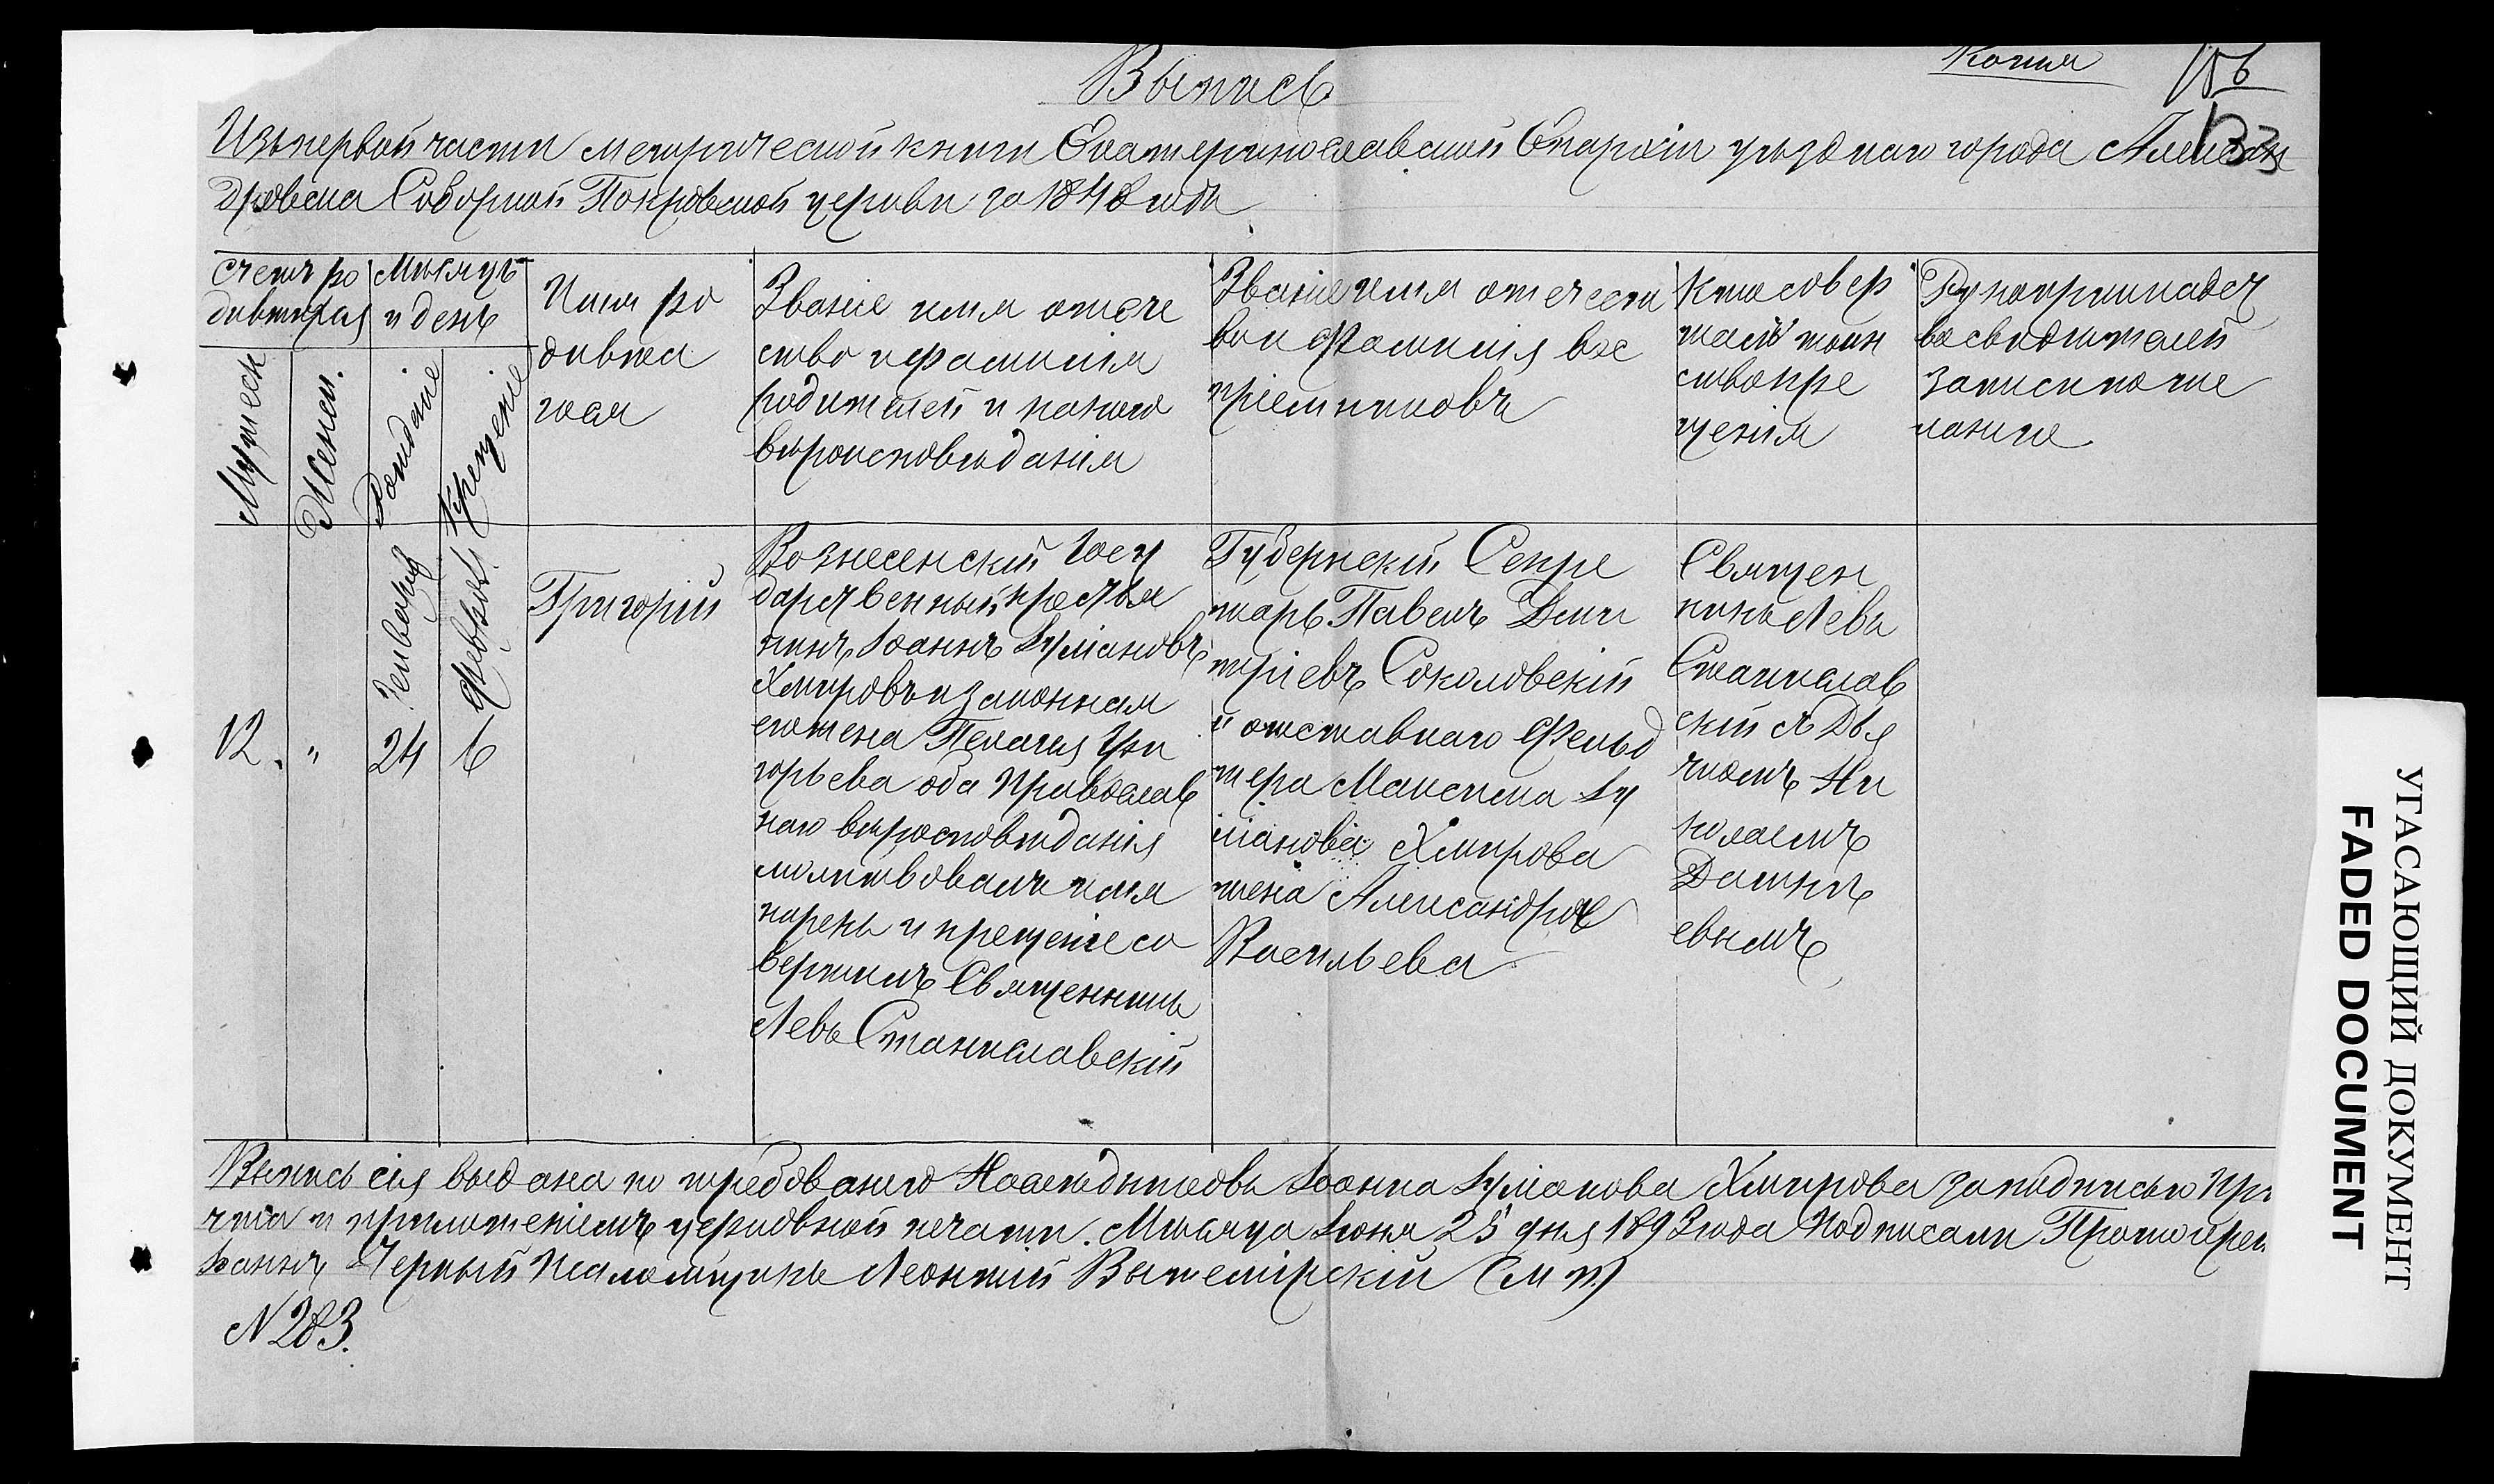 Копия
Выпись
Изъ первой части метрической книги Екатеринославской Епархіи уѣзднаго города Алексан
дровска Соборной Покровской церкви за 1848 годъ
Счетъ ро
дившихся
Мѣсяцъ
и день
Имя ро
дивша
гося
Званіе имя отече
ство и фамилія
родителей и какого
вѣроисповѣданія
Званіе имя отечест
во и фамилія вос
пріемниковъ
Кто совер
шалъ таин
ство кре
щенія
Рукоприкладст
во свидѣтелей
записи по же
ланію
Мужеск
Женск.
Рожденіе
Крещеніе
12.
"
Генваря
24
Февраля
6
Григорій
Вознесенскій Госу
дарственный крестья
нинъ Іоаннъ Іуліановъ
Хмировъ и законная
его жена Пелагія Гри
горьева оба Православ
наго вѣроисповѣданія
молитвовалъ имя
нарекъ и крещеніе со
вершилъ Священникъ
Левъ Станиславскій
Губернскій Секре
тарь Павелъ Дми
тріевъ Соколовскій
и отставнаго Фельд
шера Максима Іу
ліанова Хмирова
жена Александра
Васильева
Священ
никъ Левъ
Станислав
скій съ Дья
чкомъ Ни
колаемъ
Данил
евымъ
Выпись сія выдана по требованію Наслѣдниковъ Іоанна Іуліанова Хмирова за подписью При
чта и приложеніемъ церковной печати. Мѣсяца Іюня 25 дня 1893 года Подписали Протоіерей
Іоаннъ Черный Псаломщикъ Леонтій Вышемірскій (М П)
N 283.
УГАСАЮЩИЙ ДОКУМЕНТ
FADED DOCUMENT